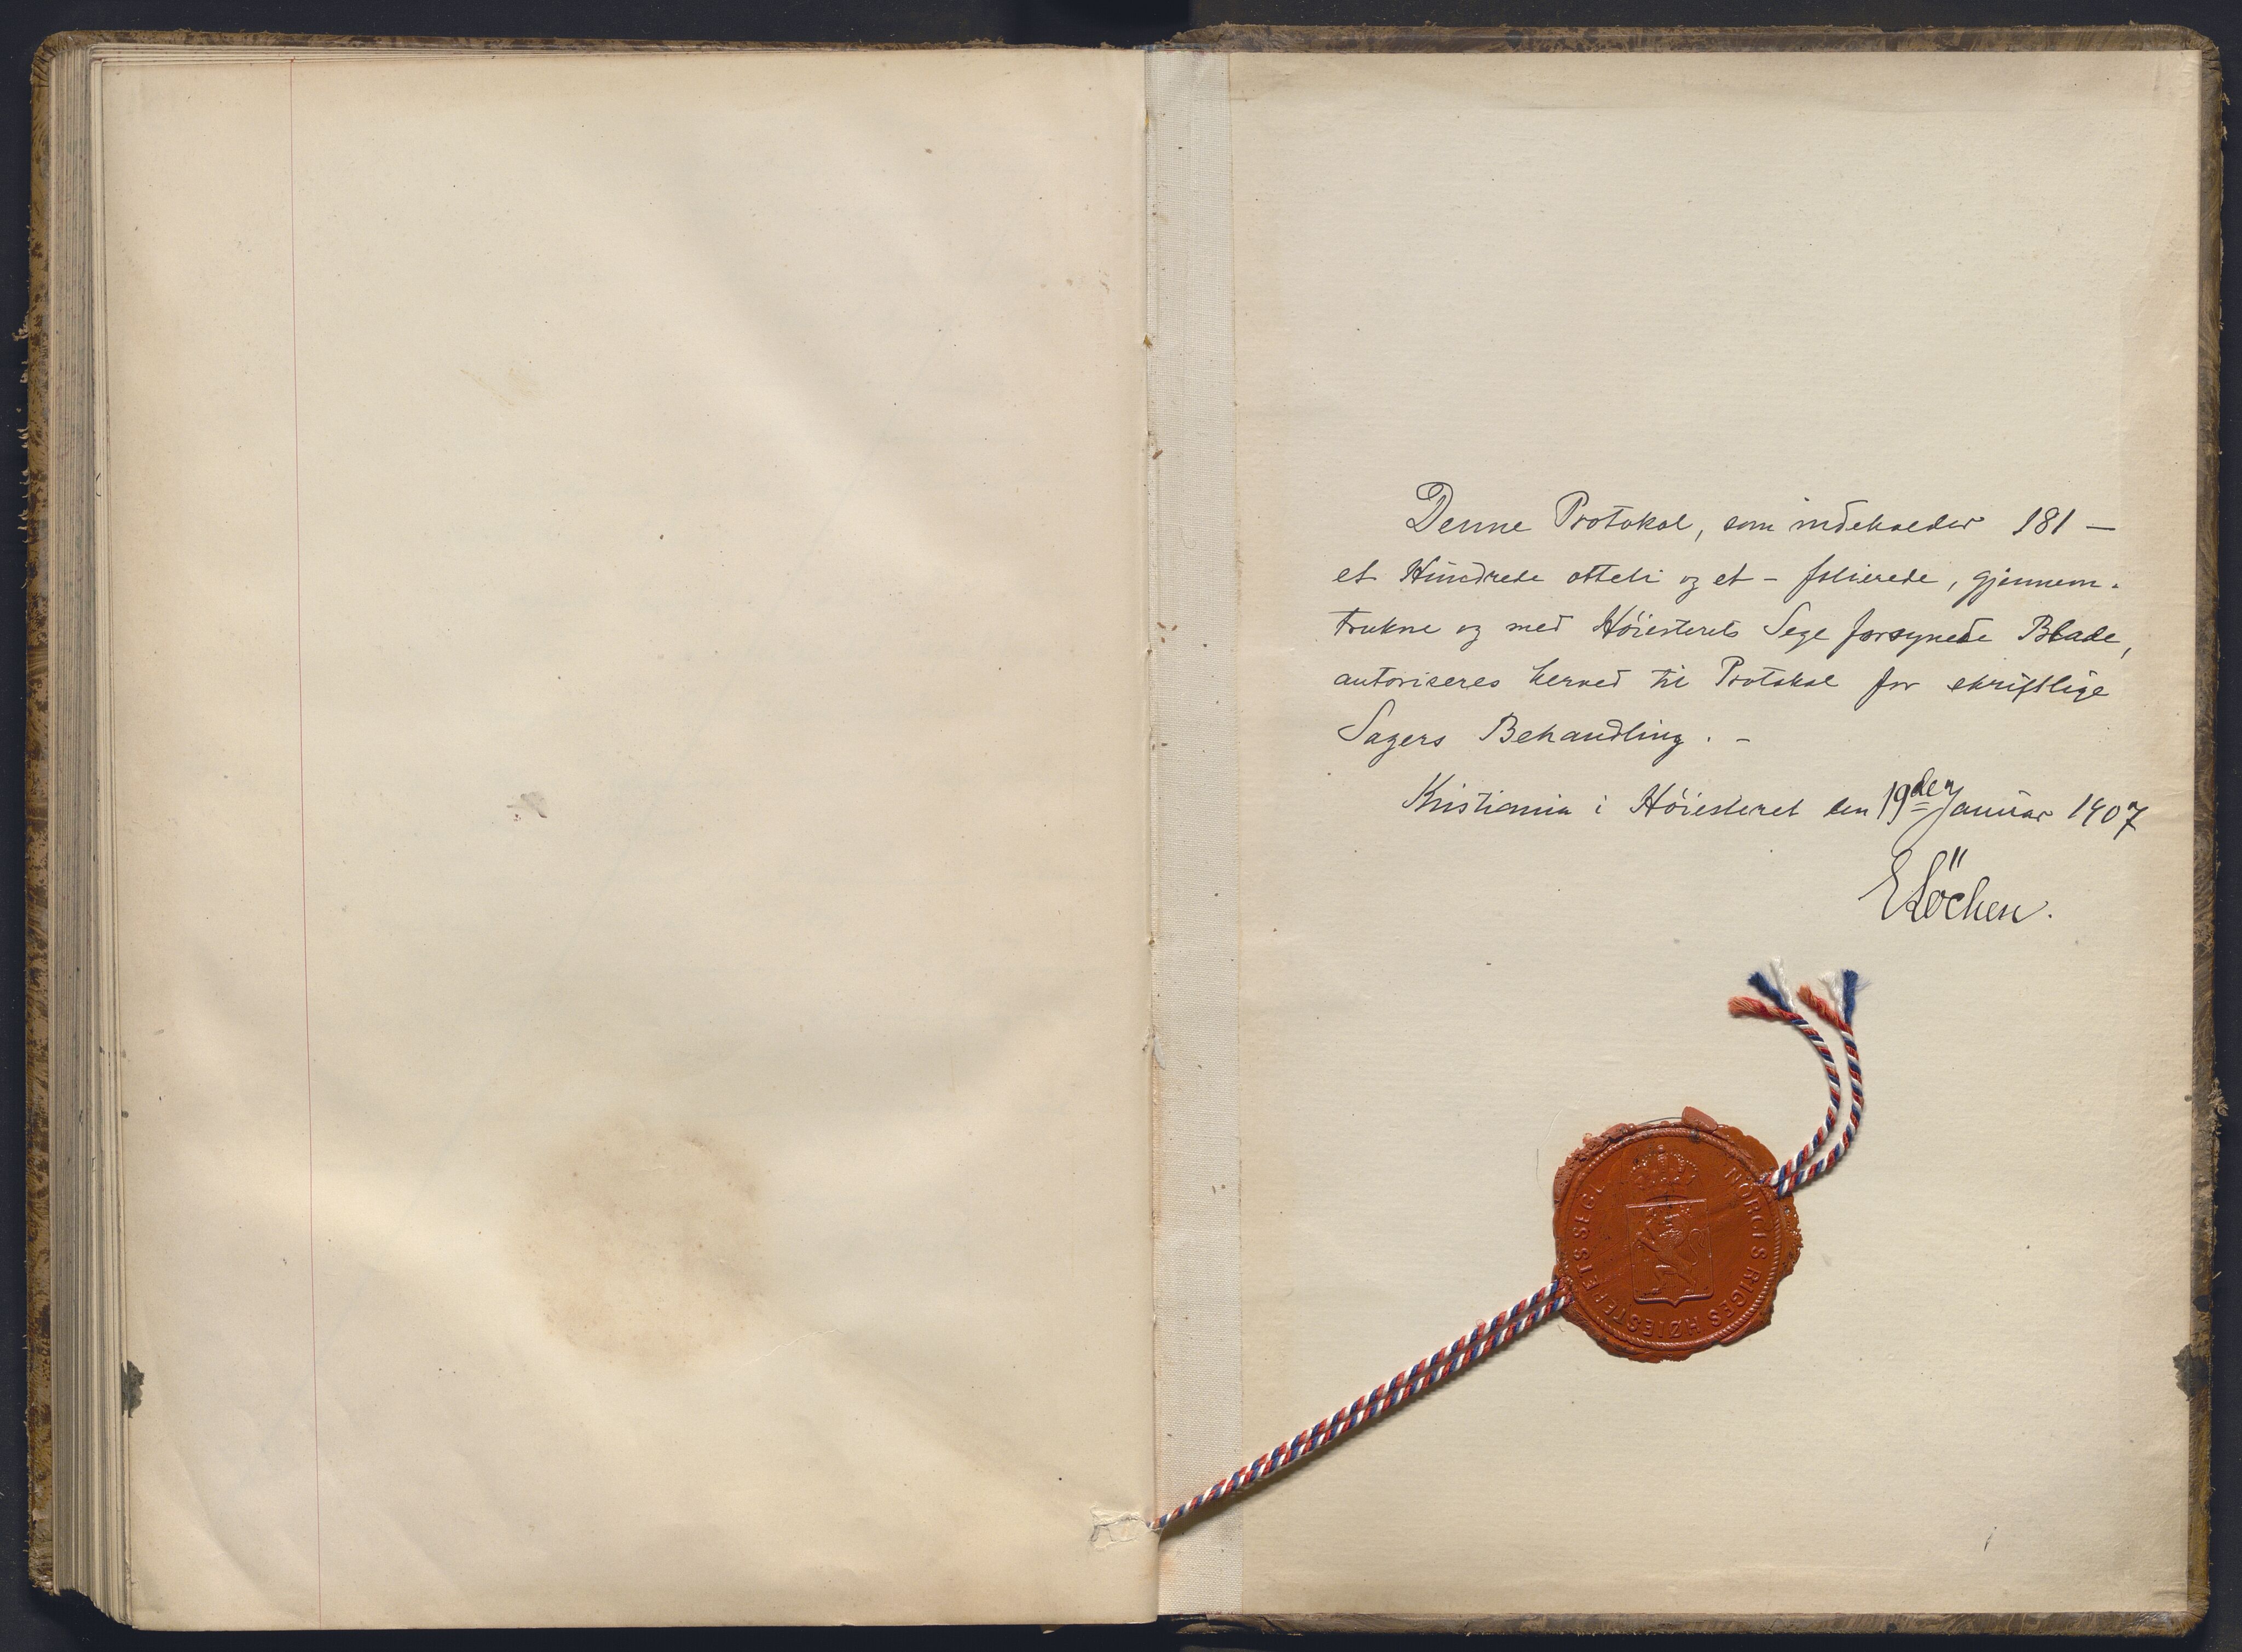 Denne Protokol, som indeholder 181 —
et Hundrede otteti og et - folierede, gjennem-
trukne og med Høiesterets Segl forsynede Blade,
autoriseres herved til Protokol for skriftlige
Sagers Behandling. -
Kristiania i Høiesteret den 19de Januar 1907
E Löchen.
NORGES RIGES HØIESTERETS SEGL